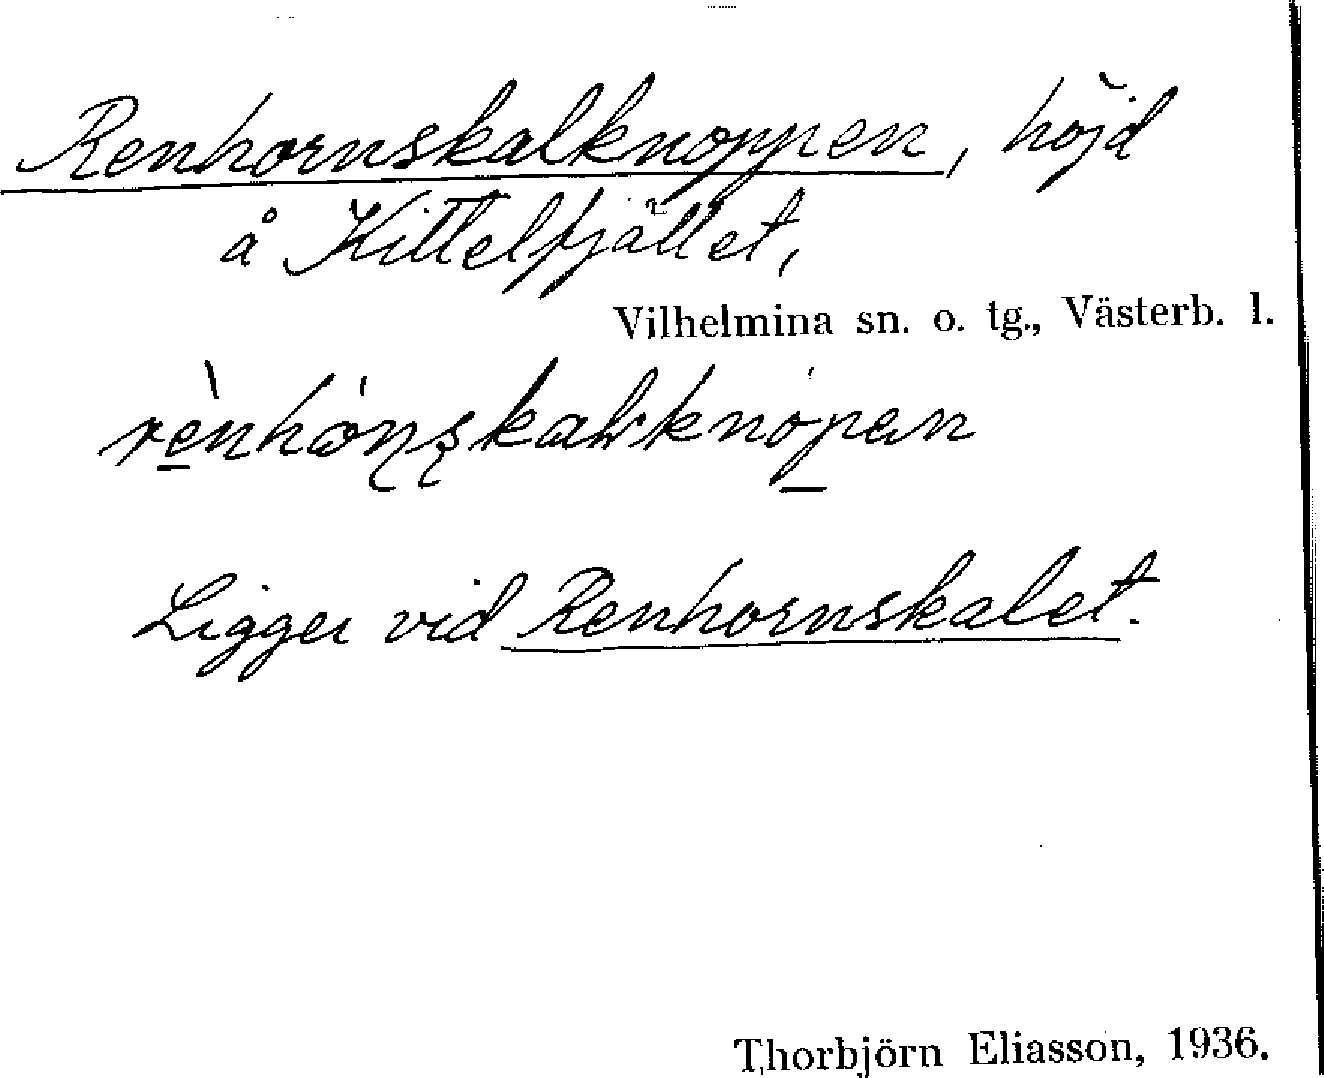 Renhornskalknoppen, höjd
å Kittelfjället,
Vilhelmina sn. o. tg., Västerb. l.
Ligger vid Renhornskalet.
Thorbjörn Eliasson, 1936.